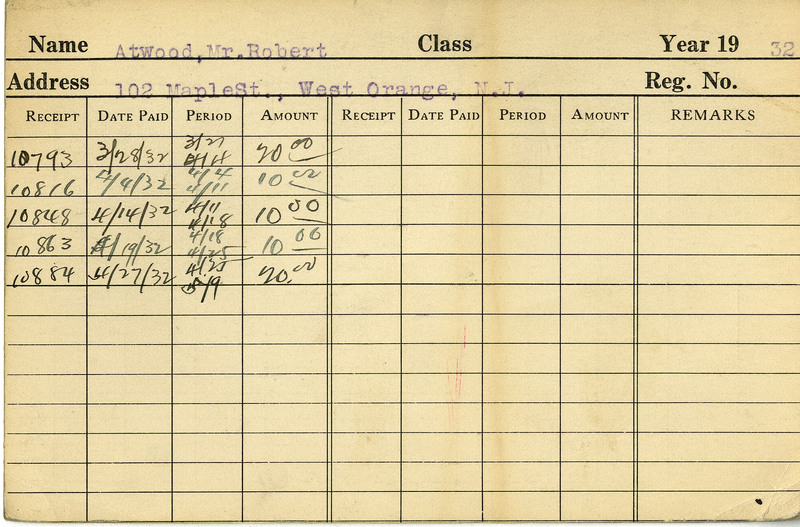 Name Atwood,Mr.Robert Class Year 19 32
Address 102 MapleSt., West Orange, N.J. Reg. No.
RECEIPT DATE PAID PERIOD AMOUNT RECEIPT DATE PAID PERIOD AMOUNT REMARKS
3/27
10793 3/28/32 4/4 20 00
10816 4/4/32 4/4 10 00
4/11
10848 4/14/32 4/11 10 00
4/18
10863 4/19/32 4/18 10 00
4/25
10884 4/27/32 4/25 20.00
5/9